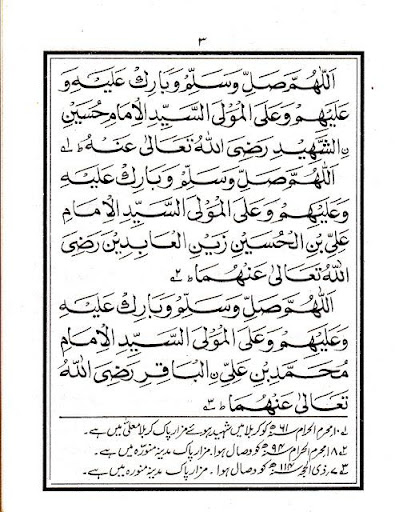 ٣
اَللّٰهُمَّ صَلِّ وَسَلِّمْ وَبَارِكْ عَلَيْهِ وَ
عَلَيْهِمْ وَعَلَى الْمَوْلَى السَّيِّدِ الْاِمَامِ حُسَيْنِ
نِ الشَّهِيْدِ رَضِىَ اللّٰهُ تَعَالٰى عَنْهُ ؕ ١؎
اَللّٰهُمَّ صَلِّ وَسَلِّمْ وَبَارِكْ عَلَيْهِ
وَعَلَيْهِمْ وَعَلَى الْمَوْلَى السَّيِّدِ الْاِمَامِ
عَلِىِّ بْنِ الْحُسَيْنِ زَيْنِ الْعَابِدِيْنَ رَضِىَ
اللّٰهُ تَعَالٰى عَنْهُمَا ؕ ٢؎
اَللّٰهُمَّ صَلِّ وَسَلِّمْ وَبَارِكْ عَلَيْهِ
وَعَلَيْهِمْ وَعَلَى الْمَوْلَى السَّيِّدِ الْاِمَامِ
مُحَمَّدِ بْنِ عَلِىِّ نِ الْبَاقِرِ رَضِىَ اللّٰهُ
تَعَالٰى عَنْهُمَا ؕ ٣؎
١؎ ١٠ محرم الحرام ٦١ھ کو کربلا میں شہید ہوئے مزار پاک کربلا معلیٰ میں ہے۔
٢؎ ١٨ محرم الحرام ٩٤ھ کو وصال ہوا۔ مزار پاک مدینہ منورہ میں ہے۔
٣؎ ٧ ذی الحجہ ١١٤ھ کو وصال ہوا۔ مزار پاک مدینہ منورہ میں ہے۔